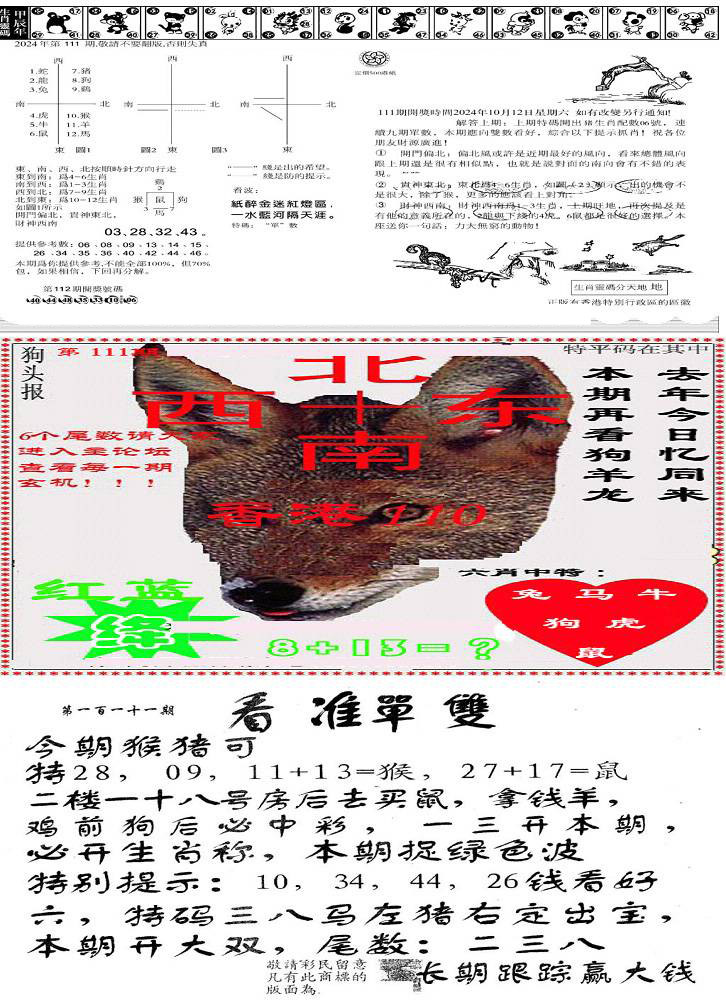 甲辰年
生肖靈碼
2024年第111期,敬請不要翻版,否則失真
定價500港紙
西
西
西
1.蛇 7.豬
2.龍 8.狗
3.兔 9.雞
南 北 南 北 南 北
4.虎 10.猴
5.牛 11.羊
6.鼠 12.馬
東 圖1 圖2 東 圖3 東
東、南、西、北按順時針方向行走
東到南：爲4-6生肖
南到西：爲1-3生肖
西到北：爲7-9生肖
北到東：爲10-12生肖
如圖1所示
開門偏北，貴神東北，
財神西南
雞
2
猴 鼠 狗
3 7
馬
綫是出的希望。
綫是防的提示。
看波：
紙醉金迷紅燈區，
一水藍河隔天涯。
特碼：“單”數
03、28、32、43。
提供參考數：06、08、09、13、14、15、
26、34、35、36、40、42、44、46。
本期爲你提供參考,不能全部100%，但70%
包，如果相信，下回再分解。
第112期開獎號碼
111期開獎時間2024年10月12日星期六 如有改變另行通知!
解答上期：上期特碼開出豬生肖配數06號，連
續九期單數，本期應向雙數看好，綜合以下提示抓肖！祝各位
朋友財源廣進！
① 開門偏北：偏北風或許是近期最好的風向，看來總體風向
跟上期還是很有相似點，也就是說對面的南向會有不錯的表
現。
② 貴神東北：東北爲4-6生肖，如圖(23)顯示出的機會不
是很大，除了猴，更多的應該看上對角。
③ 財神西南：財神西南爲1-3生肖，上期旺地，再次提及是
有他的意義所在的，2龍與下綫的4虎，6鼠都是很好的選擇。本
座送你一句話：力大無窮的動物！
生肖靈碼分天地 地
正版有香港特別行政區的區徽
狗头报
第 111期
特平码在其中
北
西 十 东
南
香港110
去年今日忆同来
本期再看狗羊龙
6个尾数请大家
进入主论坛
查看每一期
玄机！！！
六肖中特：
兔 马 牛
狗 虎
鼠
红 蓝
绿
8+13=?
第一百一十一期
看准單雙
今期猴猪可
特28，09，11+13=猴，27+17=鼠
二楼一十八号房后去买鼠，拿钱羊，
鸡前狗后必中彩，一三开本期，
必开生肖称，本期捉绿色波
特别提示：10，34，44，26钱看好
六，特码三八马左猪右定出宝，
本期开大双，尾数：二三八
敬請彩民留意
凡有此商標的
版面為.
长期跟踪赢大钱